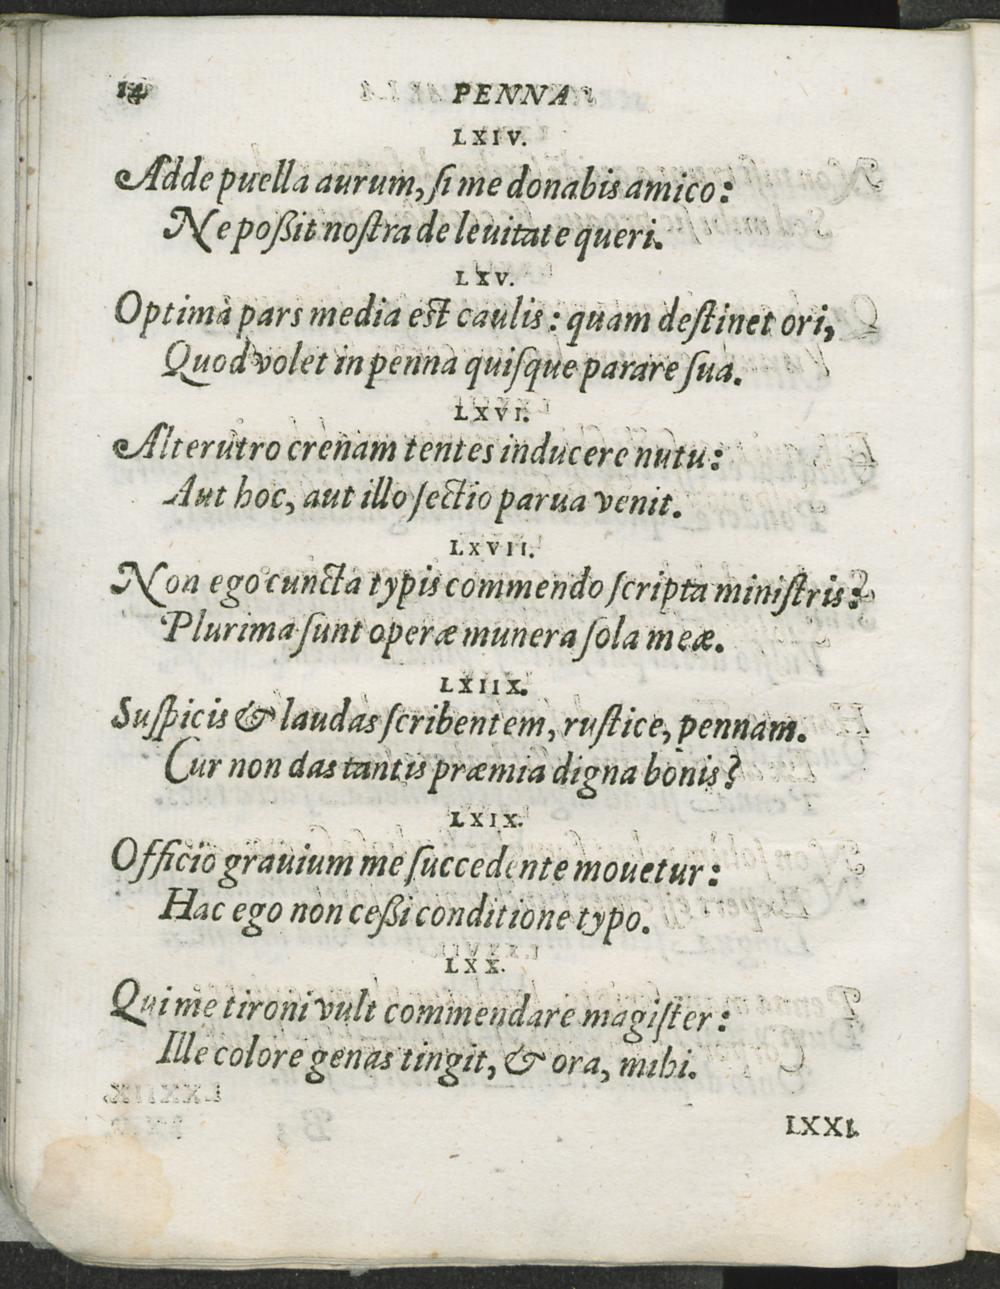 14 PENNA
LXIV.
Adde puella aurum, ſi me donabis amico:
Ne poßit noſtra de leuitate queri.
LXV.
Optima pars media est caulis: quam deſtinet ori,
Quod volet in penna quiſque parare ſua.
LXVI.
Alterutro crenam tentes inducere nutu:
Aut hoc, aut illo ſectio parua venit.
LXVII.
Non ego cuncta typis commendo ſcripta miniſtris:
Plurima ſunt operæ munera ſola meæ.
LXIIX.
Suſpicis & laudas ſcribentem, ruſtice, pennam.
Cur non das tantis præmia digna bonis?
LXIX.
Officio grauium me ſuccedente mouetur:
Hac ego non ceßi conditione typo.
LXX.
Qui me tironi vult commendare magiſter:
Ille colore genas tingit, & ora, mihi.
LXXI.